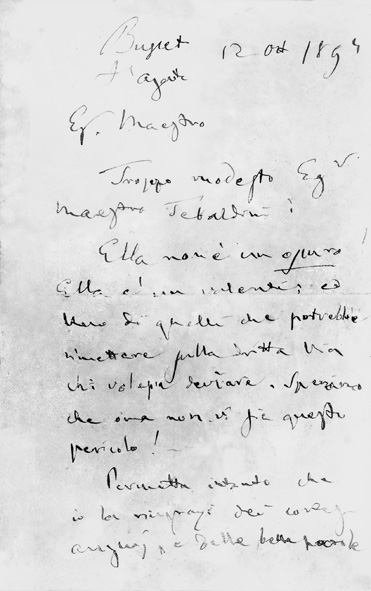 Busset
S. Agata
12 Ott 1894
Eg. Maestro
Troppo modesto Egr
Maestro Tebaldini!
Ella non è un oscuro!
Ella è un valente; ed
uno di quelli che potrebbe
rimettere sulla dritta via
chi volesse deviare. Speriamo
che ora non vi sia questo
pericolo!
Permetta intanto che
io La ringrazi dei
augurj, e delle belle parole